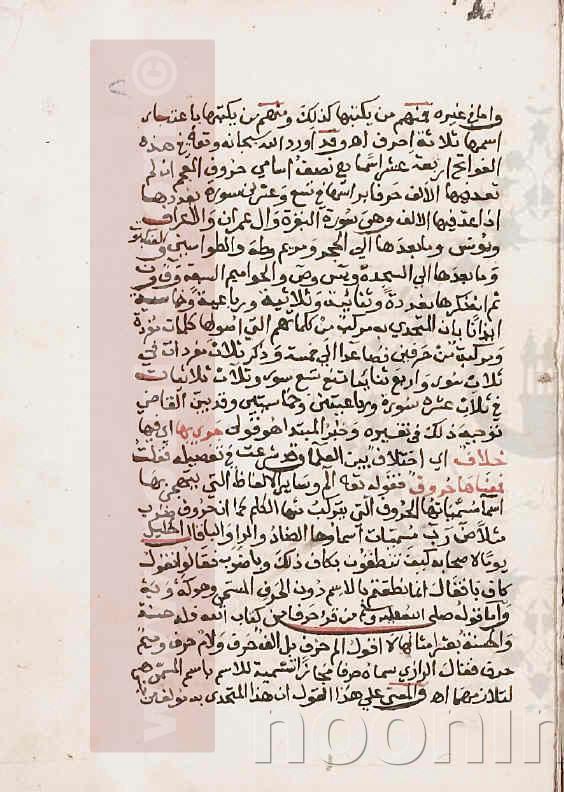 واما في غيره فمنهم من يكتبها كذلك ومنهم من يكتبها باعتبار
اسمها ثلاثة احرف اهـ وقد اورد الله سبحانه وتعه في هذه
الفواتح اربعة عشر اسما هي نصف اسامي حروف المعجم ان لم
تعد فيها الالف حرفا براسها في تسع وعشرين سورة بعددها
اذا عد فيها الالف وهي سورة البقرة وال عمران والاعراف
ويونس وما بعدها الى الحجر ومريم وطه والطواسين والعنكبوت
وما بعدها الى السجدة ويس وص والحواميم السبعة وق ون
ثم انه ذكرها مفردة وثنائية وثلاثية ورباعية وخماسية
ايذانا بان المتحدى به مركب من كلماتهم التي اصولها كلمات مفردة
ومركبة من حرفين فصاعدا الى خمسة وذكر ثلاث مفردات في
ثلاث سور واربع ثنائيات في تسع سور وثلاث ثلاثيات
في ثلاث عشرة سورة ورباعيتين وخماسيتين وقد بين القاضي
توجيه ذلك في تفسيره وخبر المبتدا هو قوله فيها
خلاف اي اختلاف بين العلما وقد شرعت في تفصيله فقلت
حروف فقوله تعه الم وساير الالفاظ التي يتهجى بها
اسما مسمياتها الحروف التي يتركب منها الكلم كما ان حروف ضرب
مثلا ض ر ب مسميات اسماوها الضاد والرا والبا قال الخليل
يوما لاصحابه كيف تنطقون بكاف ذلك وبا ضرب فقالوا نقول
كاف با فقال انما نطقتم بالاسم دون الحرف المسمى وهو كه وبه
واما قوله صلى الله عليه وسلم من قرا حرفا من كتاب الله فله حسنة
والحسنة بعشر امثالها لا اقول الم حرف بل الف حرف ولام حرف وميم
حرف فقال الرازي سماه حرفا مجازا تسمية للاسم باسم المسمى
لتلازمهما اهـ والمعنى على هذا القول ان هذا المتحدى به مولف من
noonin